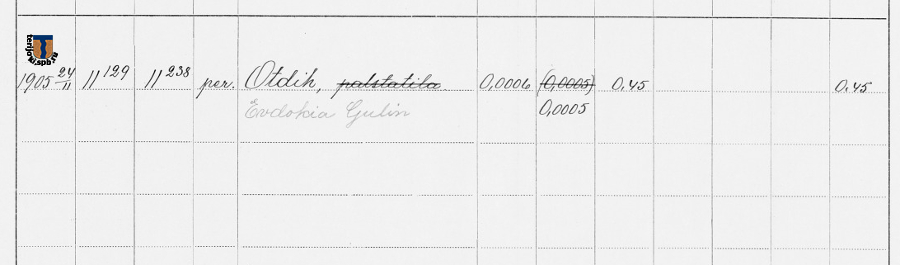 terijoki.spb.ru
1905 24/11 11 129 11 238 per. Otdih, palstatila 0,0006 (0,0005) 0.45 0.45
Evdokia Gulin 0,0005